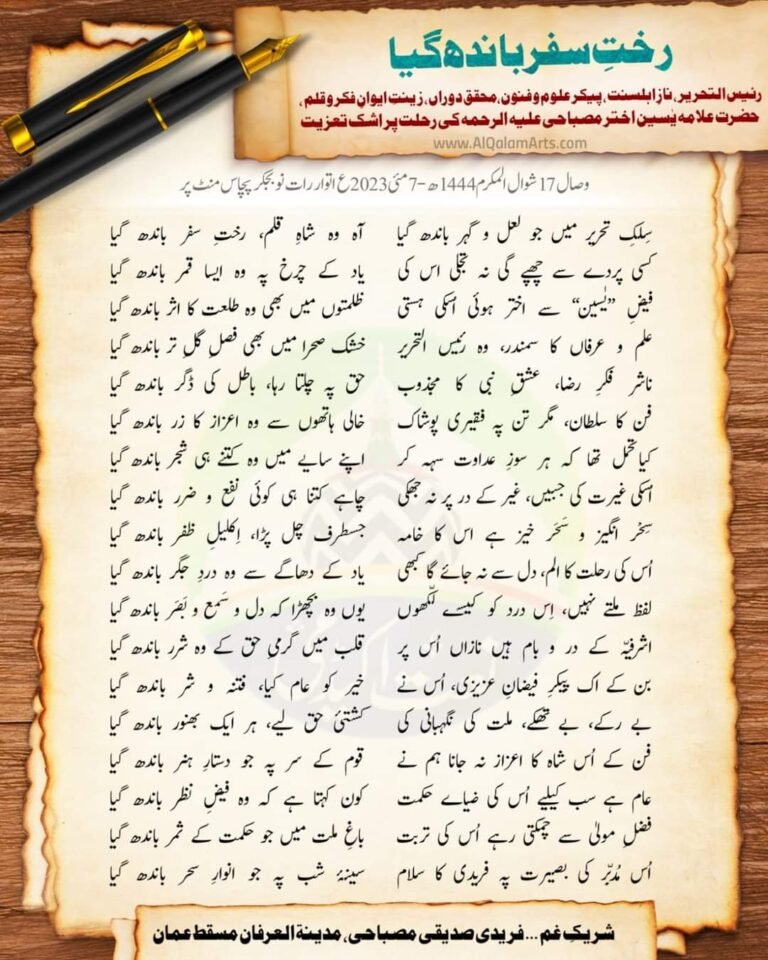 رختِ سفر باندھ گیا
رئیس التحریر، نازِ اہلسنت، پیکرِ علوم و فنون، محقق دوراں، زینتِ ایوانِ فکر و قلم،
حضرت علامہ یٰسین اختر مصباحی علیہ الرحمہ کی رحلت پر اشک تعزیت
www.AlQalamArts.com
وصال 17 شوال المکرم 1444ھ - 7 مئی 2023ع اتوار رات نو بجکر پچاس منٹ پر
سِلکِ تحریر میں جو لعل و گہر باندھ گیا آہ وہ شاہِ قلم، رختِ سفر باندھ گیا
کسی پردے سے چھپے گی نہ تجلی اس کی یاد کے چرخ پہ وہ ایسا قمر باندھ گیا
فیضِ ”یٰسین“ سے اختر ہوئی اسکی ہستی ظلمتوں میں بھی وہ طلعت کا اثر باندھ گیا
علم و عرفاں کا سمندر، وہ رئیس التحریر خشک صحرا میں بھی فصلِ گلِ تر باندھ گیا
ناشر فکرِ رضا، عشقِ نبی کا مجذوب حق پہ چلتا رہا، باطل کی ڈگر باندھ گیا
فن کا سلطان، مگر تن پہ فقیری پوشاک خالی ہاتھوں سے وہ اعزاز کا زر باندھ گیا
کیا تحمل تھا کہ ہر سوزِ عداوت سہہ کر اپنے سایے میں وہ کتنے ہی شجر باندھ گیا
اسکی غیرت کی جبیں، غیر کے در پر نہ جھکی چاہے کتنا ہی کوئی نفع و ضرر باندھ گیا
سِحْر انگیز و سَحَر خیز ہے اس کا خامہ جسطرف چل پڑا، اِکلیلِ ظفر باندھ گیا
اُس کی رحلت کا الم، دل سے نہ جائے گا کبھی یاد کے دھاگے سے وہ دردِ جگر باندھ گیا
لفظ ملتے نہیں، اِس درد کو کیسے لکّھوں یوں وہ بچھڑا کہ دل و سَمع و بَصَر باندھ گیا
اشرفیّہ کے در و بام ہیں نازاں اُس پر قلب میں گرمیِ حق کے وہ شرر باندھ گیا
بن کے اک پیکرِ فیضانِ عزیزی، اُس نے خیر کو عام کیا، فتنہ و شر باندھ گیا
بے رکے، بے تھکے، ملت کی نگہبانی کی کشتئ حق لیے، ہر ایک بھنور باندھ گیا
فن کے اُس شاہ کا اعزاز نہ جانا ہم نے قوم کے سر پہ جو دستارِ ہنر باندھ گیا
عام ہے سب کیلیے اُس کی ضیاے حکمت کون کہتا ہے کہ وہ فیضِ نظر باندھ گیا
فضلِ مولیٰ سے چمکتی رہے اُس کی تربت باغِ ملت میں جو حکمت کے ثمر باندھ گیا
اُس مُدبّر کی بصیرت پہ فریدی کا سلام سینۂ شب پہ جو انوارِ سحر باندھ گیا
شریکِ غم ... فریدی صدیقی مصباحی، مدینۃ العرفان مسقط عمان